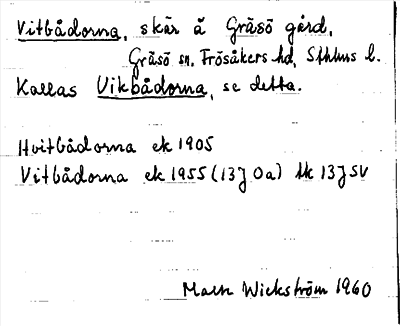 Vitbådorna, skär å Gräsö gård,
Gräsö sn, Frösåkers hd, Sthlms l.
Kallas Vikbådorna, se detta.
Hvitbådorna ek 1905
Vitbådorna ek 1955 (13J 0a) tk 13J SV
Wickström 1960